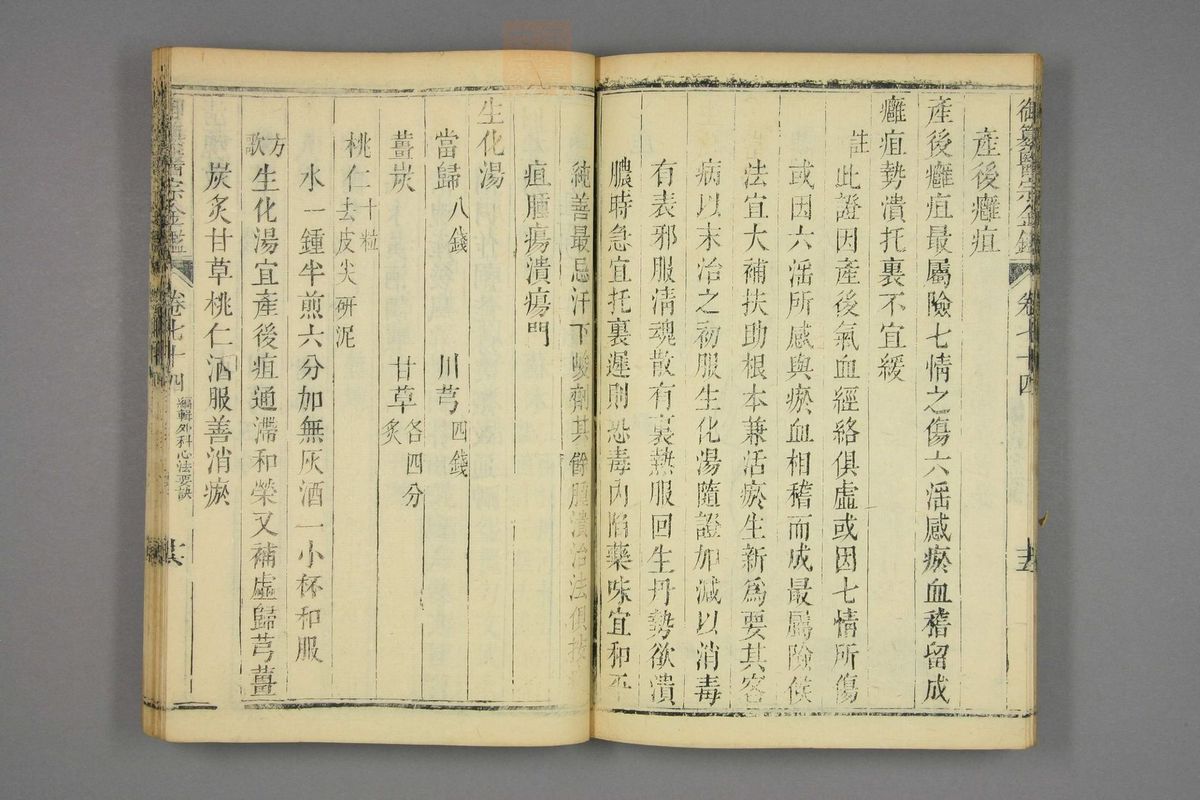 御纂醫宗金鑑 卷七十四
產後癰疽
產後癰疽最屬險七情之傷六淫感瘀血稽留成
癰疽勢潰托裏不宜緩
註 此證因產後氣血經絡俱虛或因七情所傷
或因六淫所感與瘀血相稽而成最屬險候
法宜大補扶助根本兼活瘀生新為要其客
病以末治之初服生化湯隨證加減以消毒
有表邪服清魂散有裏熱服回生丹勢欲潰
膿時急宜托裏遲則恐毒內陷藥味宜和平
純善最忌汗下峻劑其餘腫潰治法俱按
疽腫瘍潰瘍門
生化湯
當歸八錢 川芎四錢
薑炭 甘草炙各四分
桃仁十粒去皮尖研泥
水一鍾半煎六分加無灰酒一小杯和服
方歌 生化湯宜產後疽通滯和榮又補虛歸芎薑
炭炙甘草桃仁酒服善消瘀
醫宗金鑑 卷七十四 編輯外科心法要訣